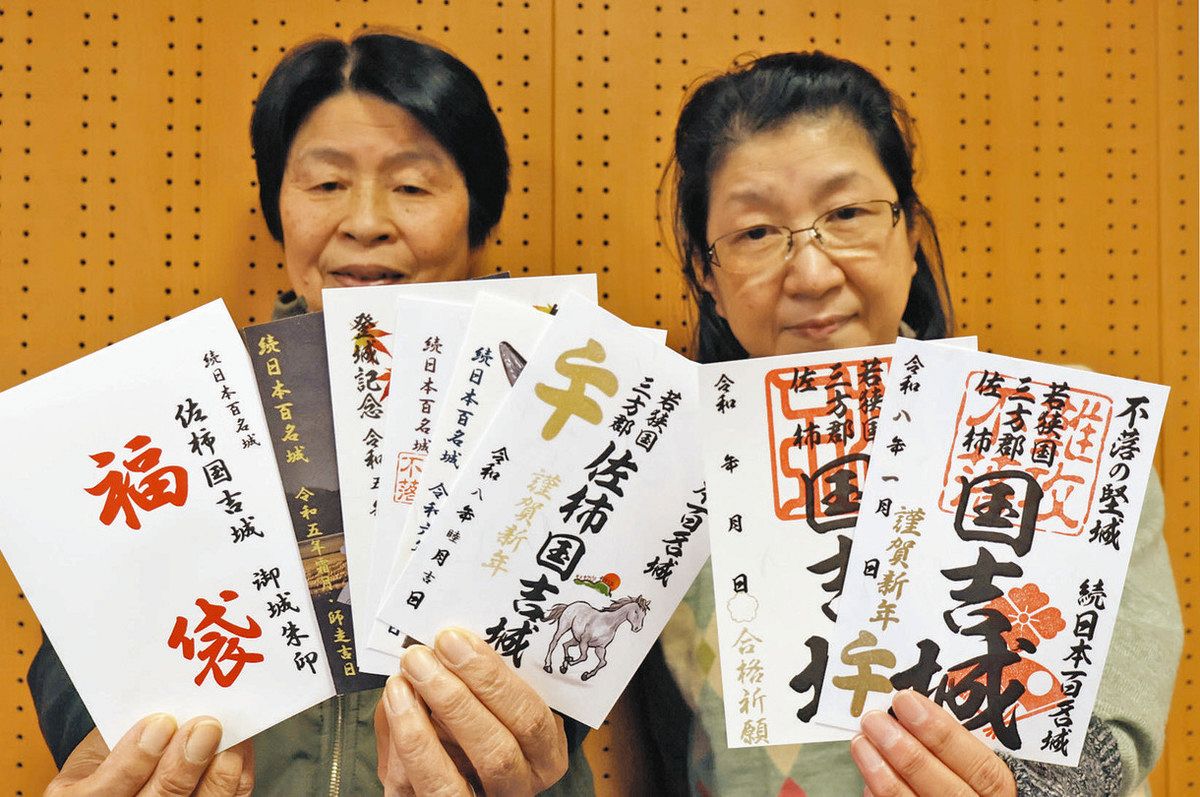 続日本百名城
佐柿国吉城
御城朱印
福
袋
続日本百名城
令和五年霜月・師走吉日
登城記念
令和五年
続日本百名城
不落
続日本百名城
令和六
午
若狭国
三方郡
佐柿国吉城
百名城
謹賀新年
令和八年睦月吉日
若狭国
三方郡
佐柿
国吉城
令和 年 月 日
合格祈願
不落の堅城
若狭国
三方郡
佐柿
国吉城
続日本百名城
令和八年一月 日
謹賀新年
午